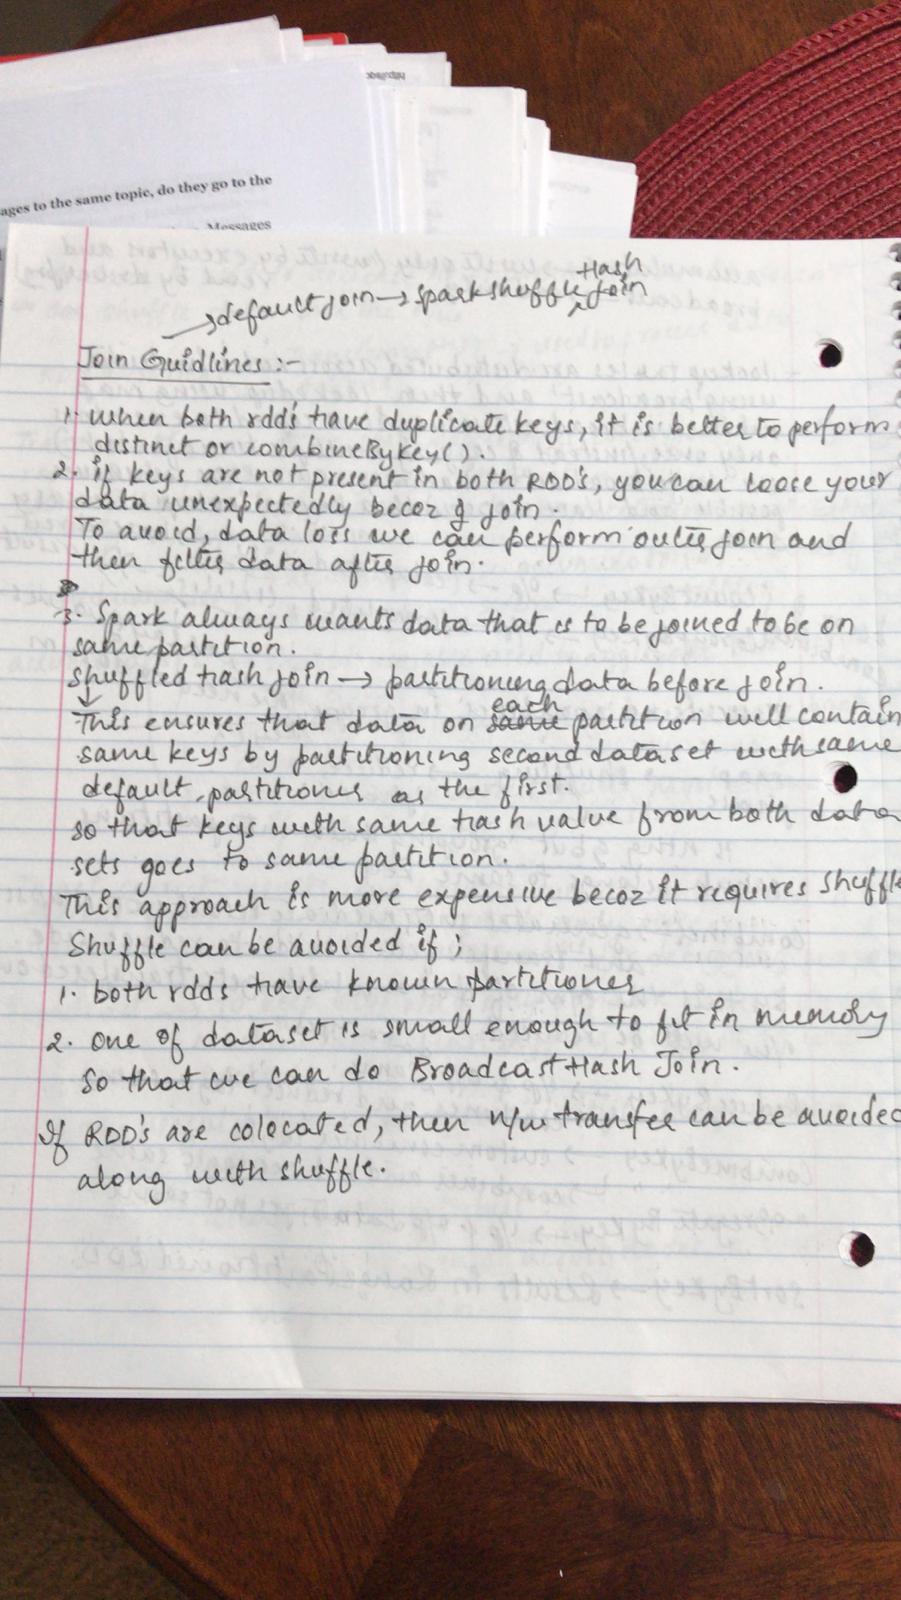 ages to the same topic, do they go to the
Messages
Hash
→ default join → spark shuffle ^ join
Join Guidlines :-
1. when both rdd's have duplicate keys, it is better to perform
distinct or combineByKey().
2. if keys are not present in both RDD's, you can loose your
data unexpectedly becoz of join.
To avoid, data loss we can perform outer join and
then filter data after join.
3. Spark always wants data that is to be joined to be on
same partition.
shuffled hash join → partitioning data before join.
↓
each
This ensures that data on same partition will contain
same keys by partitioning second dataset with same
default partitioner as the first.
so that keys with same hash value from both data
sets goes to same partition.
This approach is more expensive becoz it requires shuffle
Shuffle can be avoided if ;
1. both rdds have known partitioner
2. one of dataset is small enough to fit in memory
so that we can do Broadcast Hash Join.
If RDD's are colocated, then n/w transfer can be avoided
along with shuffle.